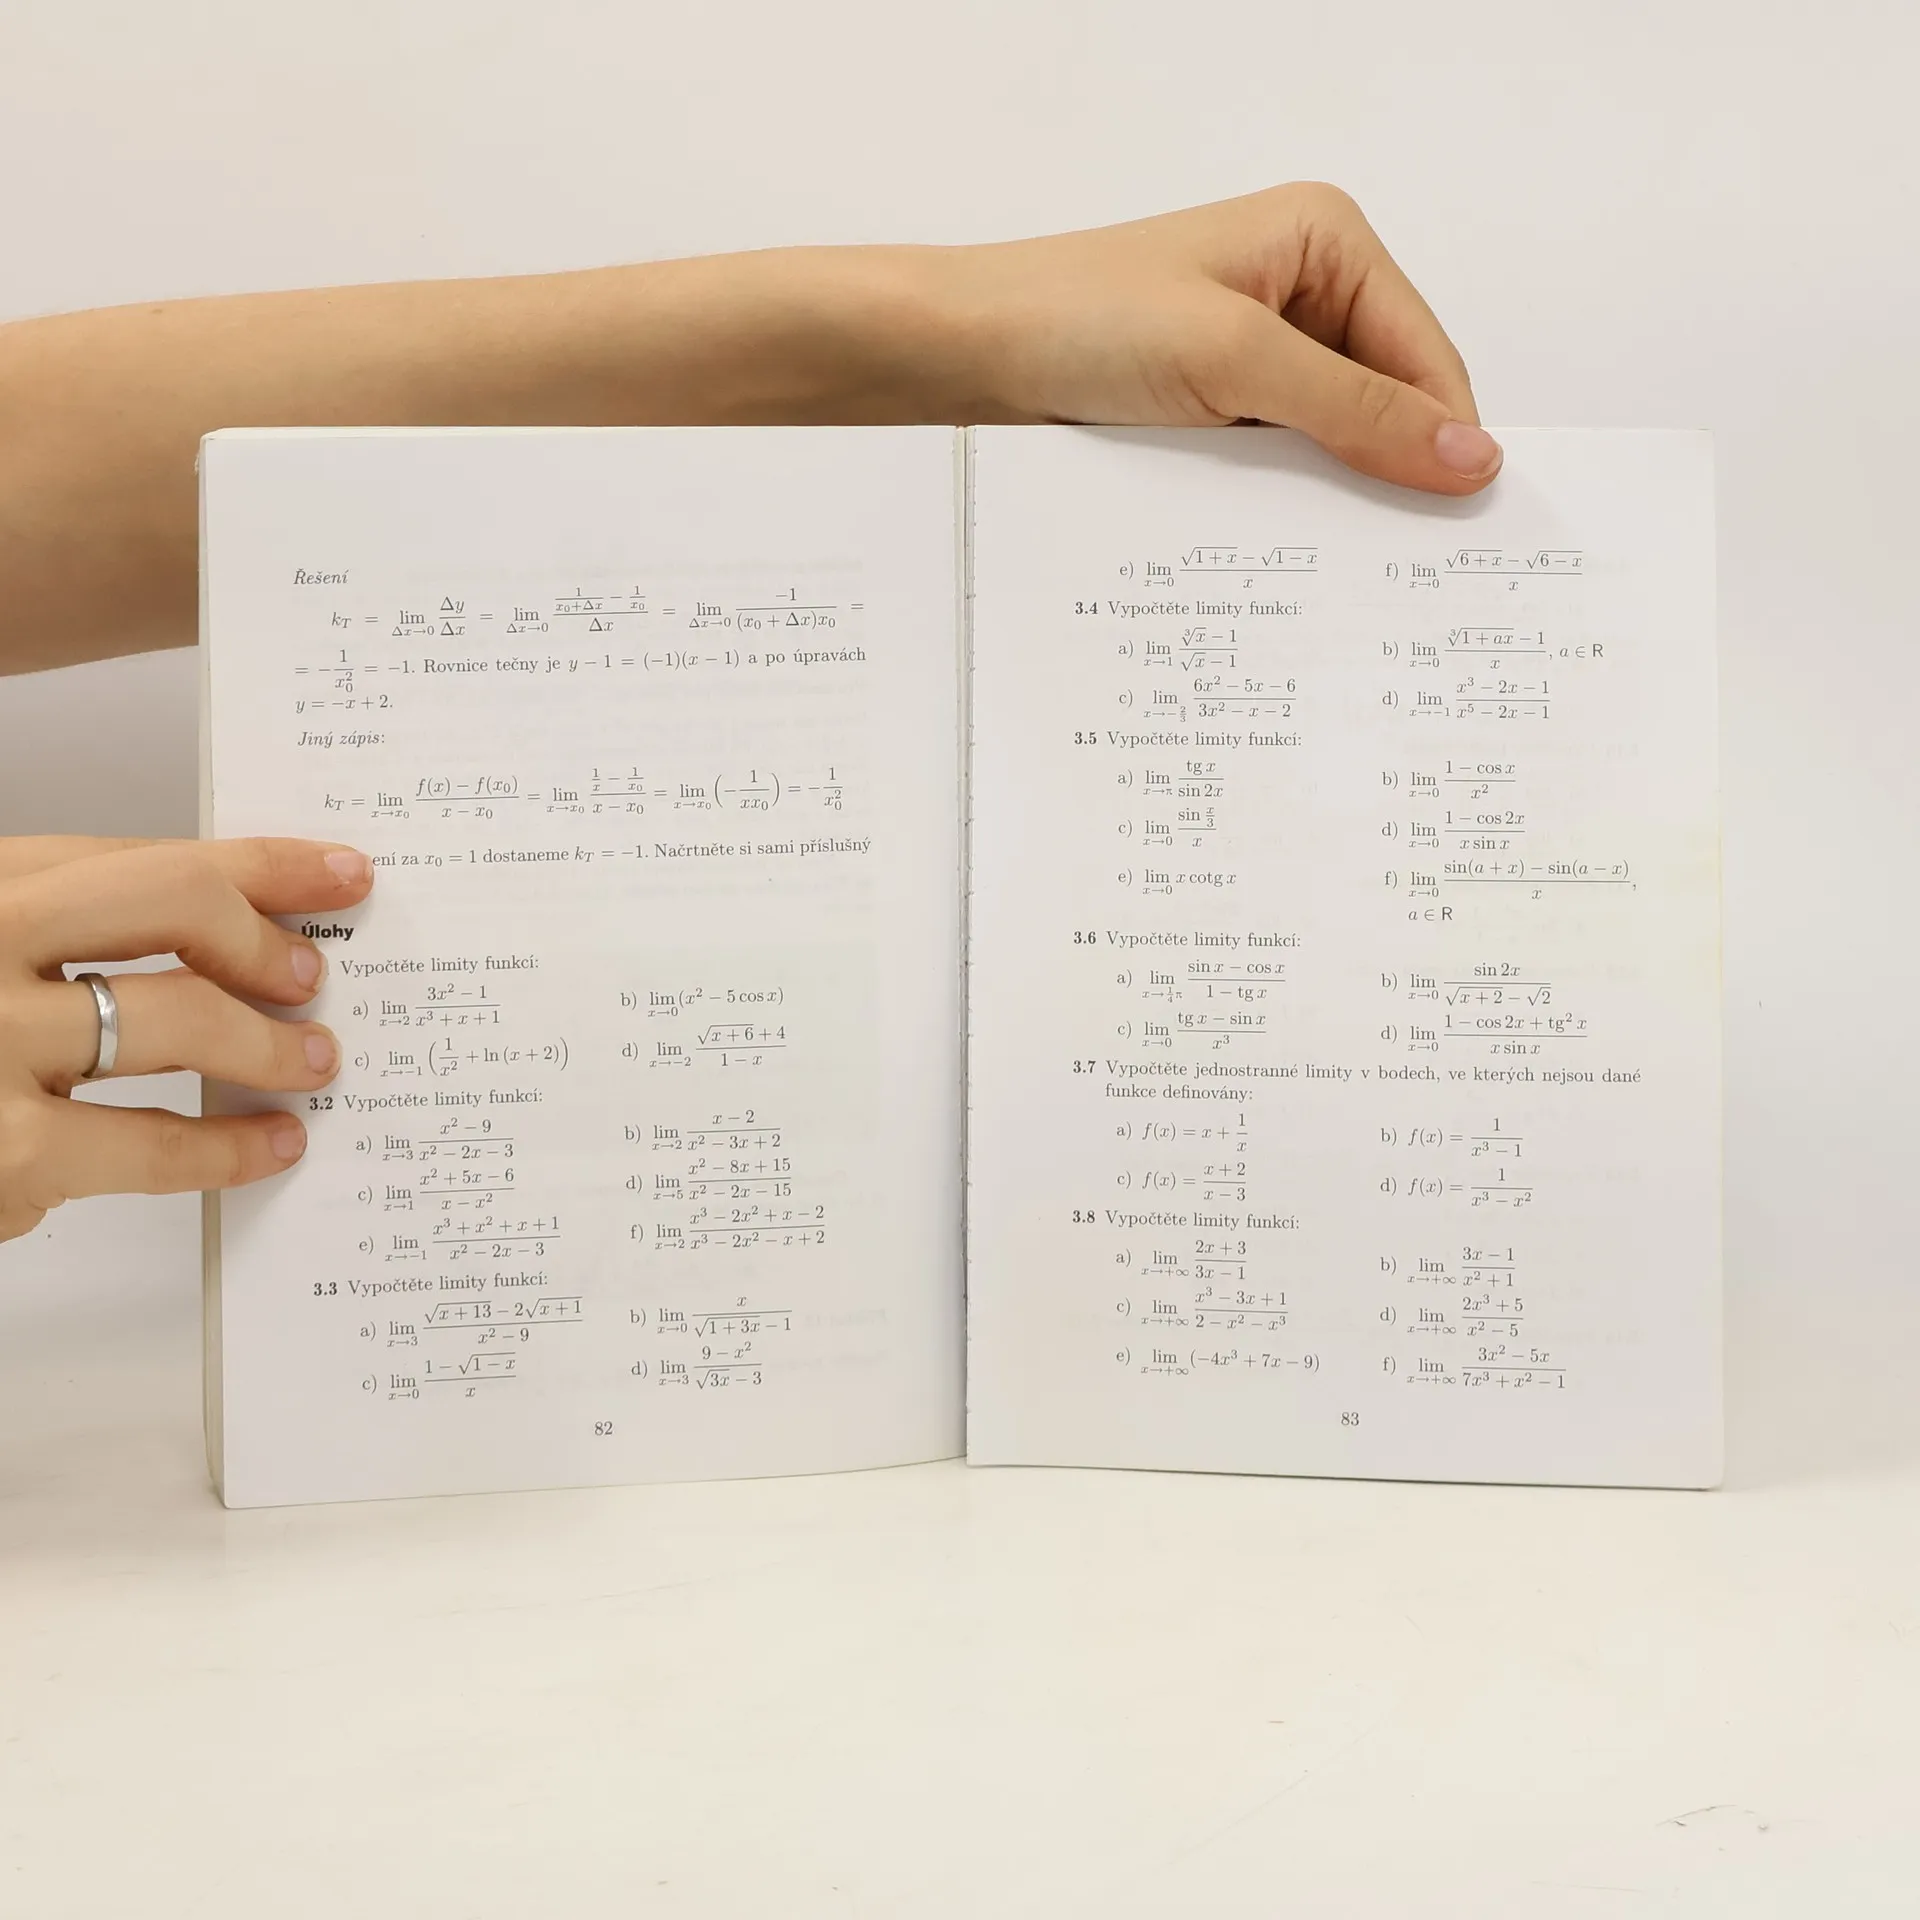 Řešení
k_T = lim_{Δx→0} Δy/Δx = lim_{Δx→0} (1/(x₀+Δx) − 1/x₀)/Δx = lim_{Δx→0} −1/((x₀ + Δx)x₀) =
= −1/x₀² = −1. Rovnice tečny je y − 1 = (−1)(x − 1) a po úpravách
y = −x + 2.
Jiný zápis:
k_T = lim_{x→x₀} (f(x) − f(x₀))/(x − x₀) = lim_{x→x₀} (1/x − 1/x₀)/(x − x₀) = lim_{x→x₀} (−1/(xx₀)) = −1/x₀²
za x₀ = 1 dostaneme k_T = −1. Načrtněte si sami příslušný
Úlohy
Vypočtěte limity funkcí:
a) lim_{x→2} (3x² − 1)/(x³ + x + 1) b) lim_{x→0} (x² − 5 cos x)
c) lim_{x→−1} (1/x² + ln (x + 2)) d) lim_{x→−2} (√(x + 6) + 4)/(1 − x)
3.2 Vypočtěte limity funkcí:
a) lim_{x→3} (x² − 9)/(x² − 2x − 3) b) lim_{x→2} (x − 2)/(x² − 3x + 2)
c) lim_{x→1} (x² + 5x − 6)/(x − x²) d) lim_{x→5} (x² − 8x + 15)/(x² − 2x − 15)
e) lim_{x→−1} (x³ + x² + x + 1)/(x² − 2x − 3) f) lim_{x→2} (x³ − 2x² + x − 2)/(x³ − 2x² − x + 2)
3.3 Vypočtěte limity funkcí:
a) lim_{x→3} (√(x + 13) − 2√(x + 1))/(x² − 9) b) lim_{x→0} x/(√(1 + 3x) − 1)
c) lim_{x→0} (1 − √(1 − x))/x d) lim_{x→3} (9 − x²)/(√(3x) − 3)
82
e) lim_{x→0} (√(1 + x) − √(1 − x))/x f) lim_{x→0} (√(6 + x) − √(6 − x))/x
3.4 Vypočtěte limity funkcí:
a) lim_{x→1} (∛x − 1)/(√x − 1) b) lim_{x→0} (∛(1 + ax) − 1)/x, a ∈ R
c) lim_{x→−2/3} (6x² − 5x − 6)/(3x² − x − 2) d) lim_{x→−1} (x³ − 2x − 1)/(x⁵ − 2x − 1)
3.5 Vypočtěte limity funkcí:
a) lim_{x→π} tg x/sin 2x b) lim_{x→0} (1 − cos x)/x²
c) lim_{x→0} (sin x/3)/x d) lim_{x→0} (1 − cos 2x)/(x sin x)
e) lim_{x→0} x cotg x f) lim_{x→0} (sin(a + x) − sin(a − x))/x,
a ∈ R
3.6 Vypočtěte limity funkcí:
a) lim_{x→¼π} (sin x − cos x)/(1 − tg x) b) lim_{x→0} sin 2x/(√(x + 2) − √2)
c) lim_{x→0} (tg x − sin x)/x³ d) lim_{x→0} (1 − cos 2x + tg² x)/(x sin x)
3.7 Vypočtěte jednostranné limity v bodech, ve kterých nejsou dané
funkce definovány:
a) f(x) = x + 1/x b) f(x) = 1/(x³ − 1)
c) f(x) = (x + 2)/(x − 3) d) f(x) = 1/(x³ − x²)
3.8 Vypočtěte limity funkcí:
a) lim_{x→+∞} (2x + 3)/(3x − 1) b) lim_{x→+∞} (3x − 1)/(x² + 1)
c) lim_{x→+∞} (x³ − 3x + 1)/(2 − x² − x³) d) lim_{x→+∞} (2x³ + 5)/(x² − 5)
e) lim_{x→+∞} (−4x³ + 7x − 9) f) lim_{x→+∞} (3x² − 5x)/(7x³ + x² − 1)
83